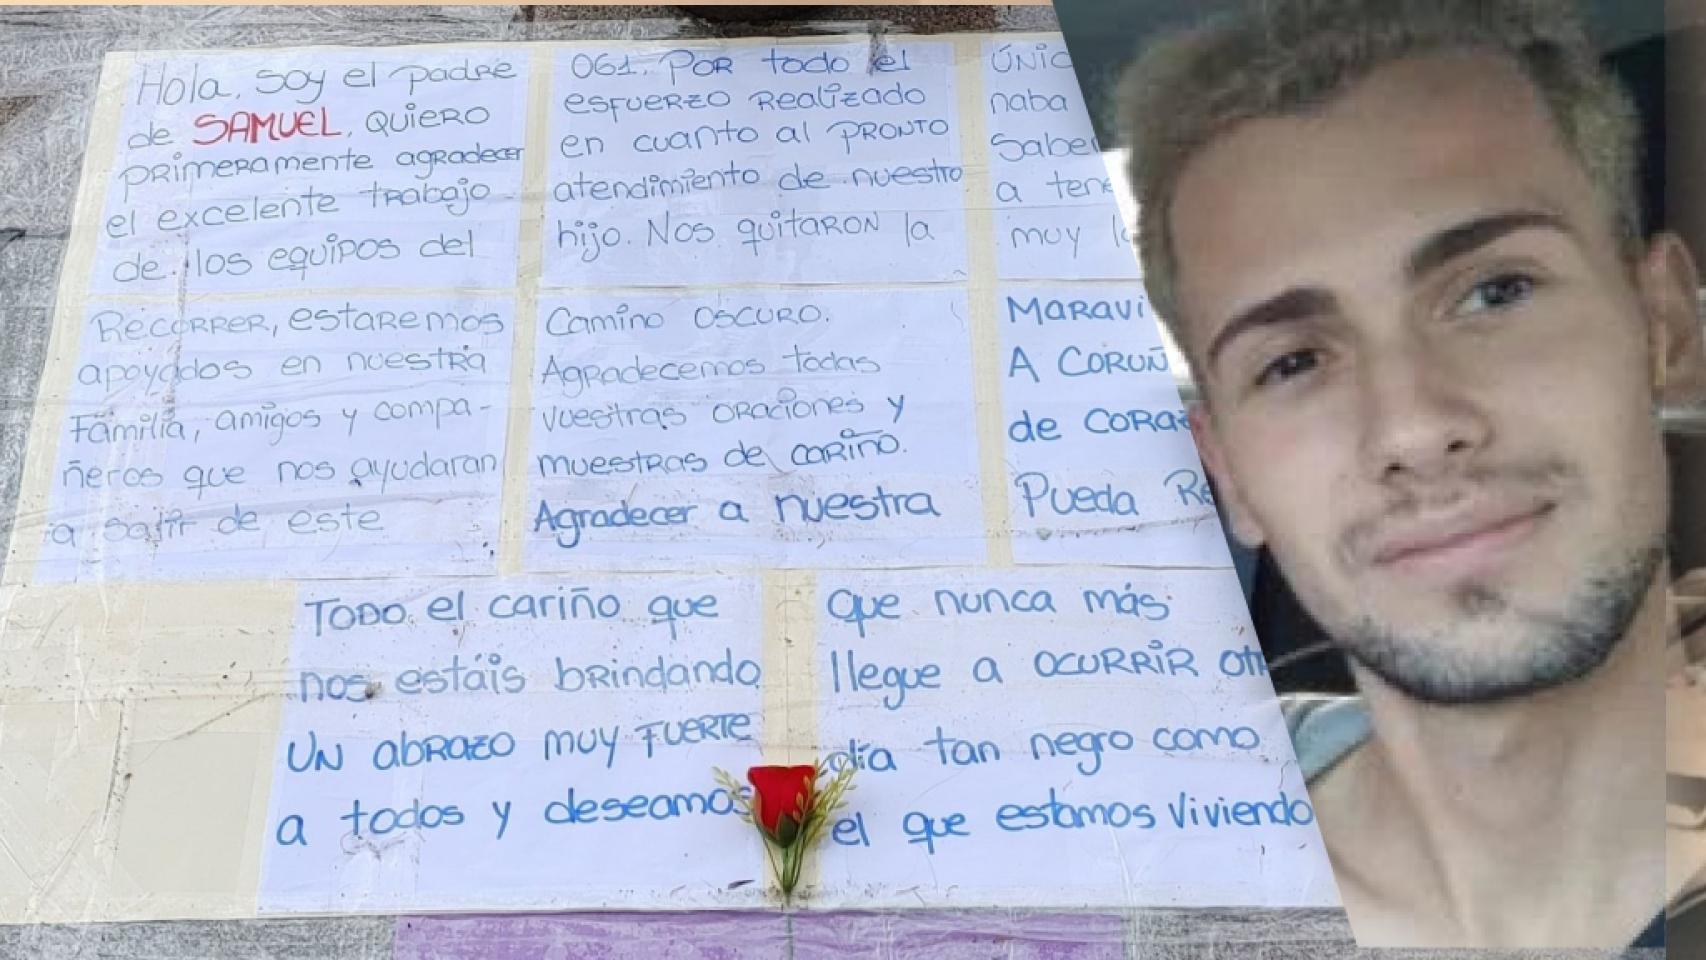 Hola, soy el padre
de SAMUEL, QUIERO
primeramente agradecer
el excelente trabajo
de los equipos del
061. Por todo el
esfuerzo realizado
en cuanto al pronto
atendimiento de nuestro
hijo. Nos quitaron la
ÚNIC
naba
Sabe
a tene
muy
Recorrer, estaremos
apoyados en nuestra
Familia, amigos y compa-
ñeros que nos ayudaran
a salir de este
Camino oscuro.
Agradecemos todas
vuestras oraciones y
muestras de cariño.
Agradecer a nuestra
Maravi
A CORUÑ
de CORAZ
Pueda Re
TODO el cariño que
nos estáis brindando
UN abrazo muy FUERTE
a todos y deseamos
que nunca más
llegue a OCURRIR otr
día tan negro como
el que estamos viviendo